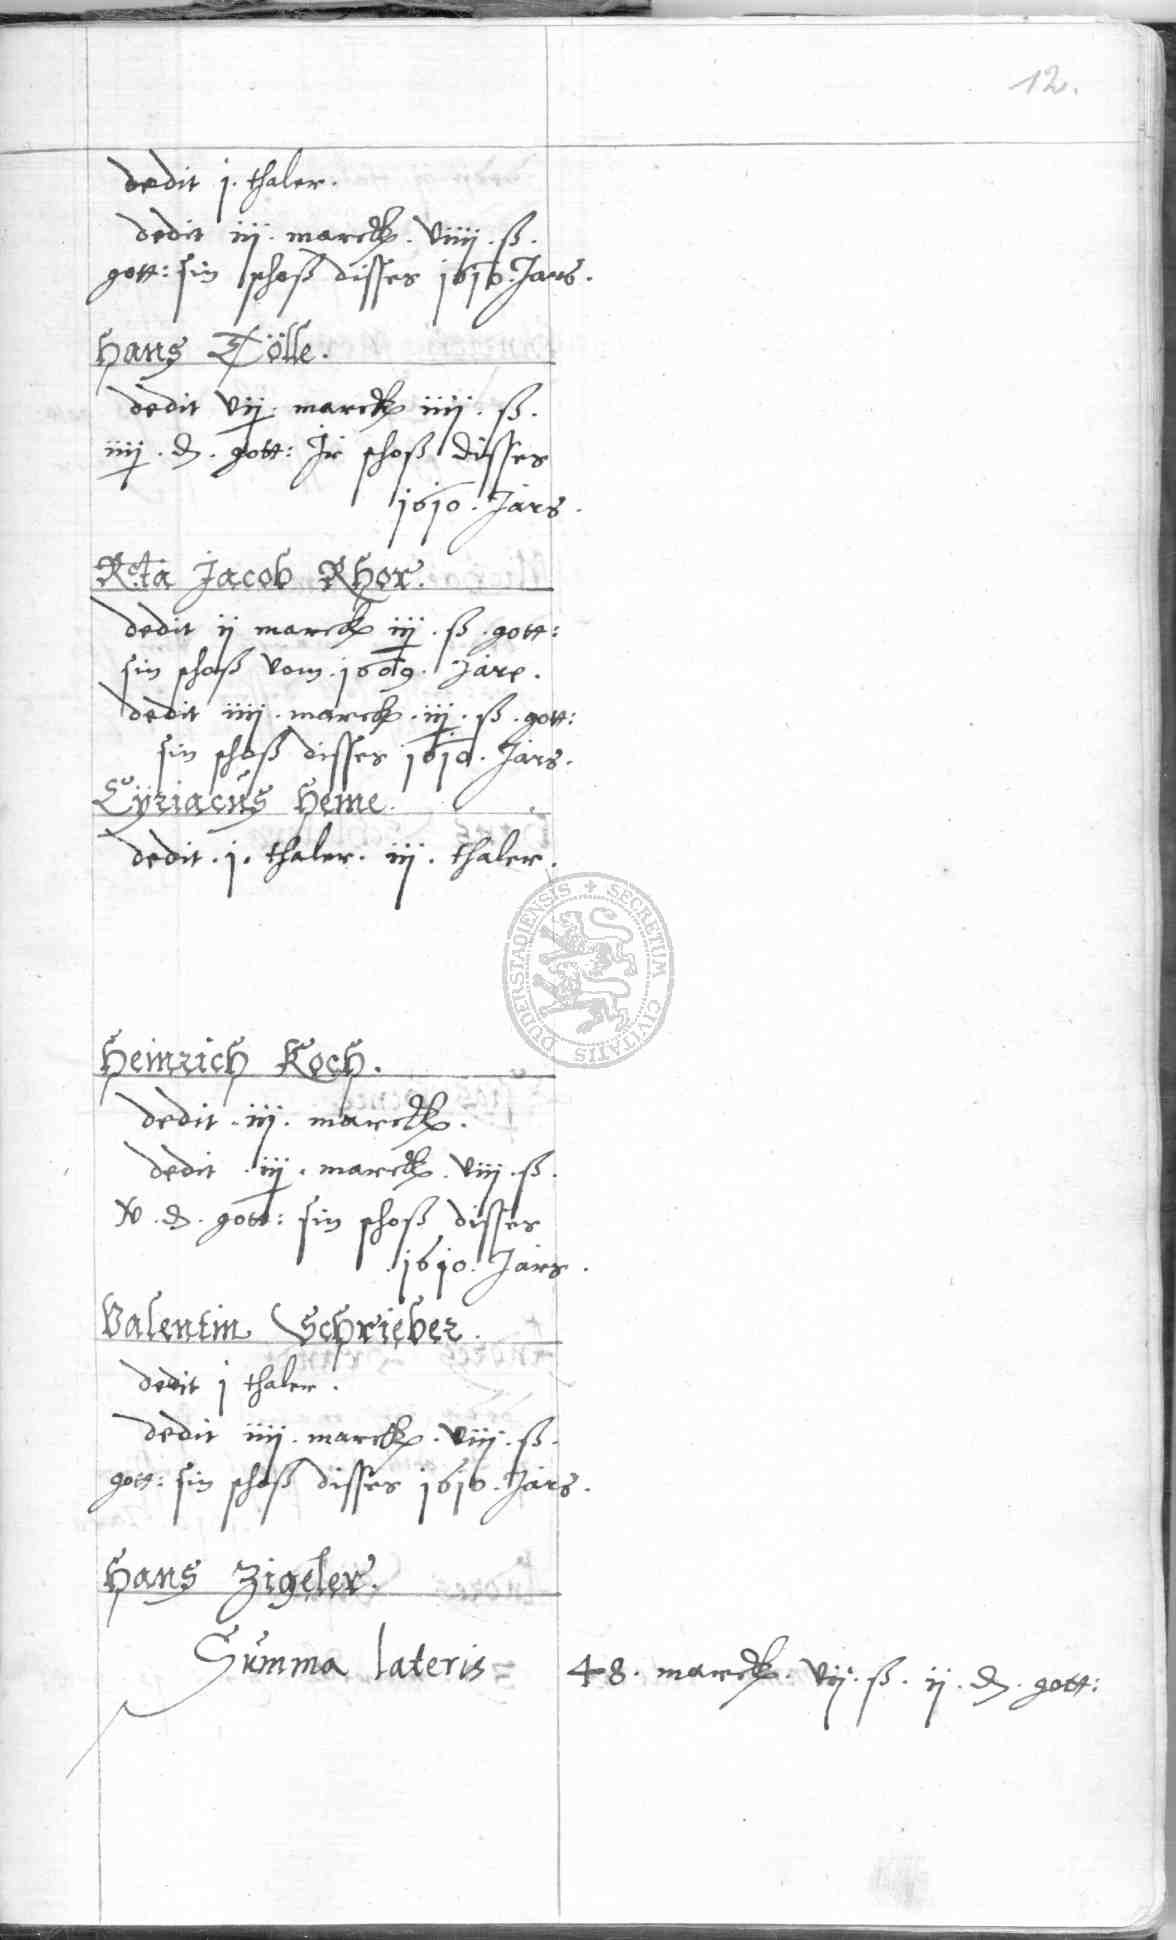 12.
dedit j. thaler.
dedit iij. marck. viiij. ß.
gott: sin schoß disses 1610. Jars.
Hans Tölle.
dedit vij. marck iiij. ß.
iiij. d. gott: Jr schoß disses
1610. Jars.
Rcta Jacob Rhor.
dedit ij marck iij. ß. gott:
sin schoß vom. 1609. Jare.
dedit iiij. marck. iij. ß. gott:
sin schoß disses 1610. Jars.
Cyriacus Heme.
dedit. j. thaler. iij. thaler.
DUDERSTADIENSIS + SECRETUM CIVITATIS
Heinrich Koch.
dedit. iij. marck.
dedit. iij. marck. viij. ß.
d. gott: sin schoß disses
1610. Jars.
Valentin Schrieber.
dedit j thaler.
dedit iiij. marck. viij. ß.
gott: sin schoß disses 1610. Jars.
Hans Zigeler.
Summa lateris = 48. marck. vij. ß. ij. d. gott: